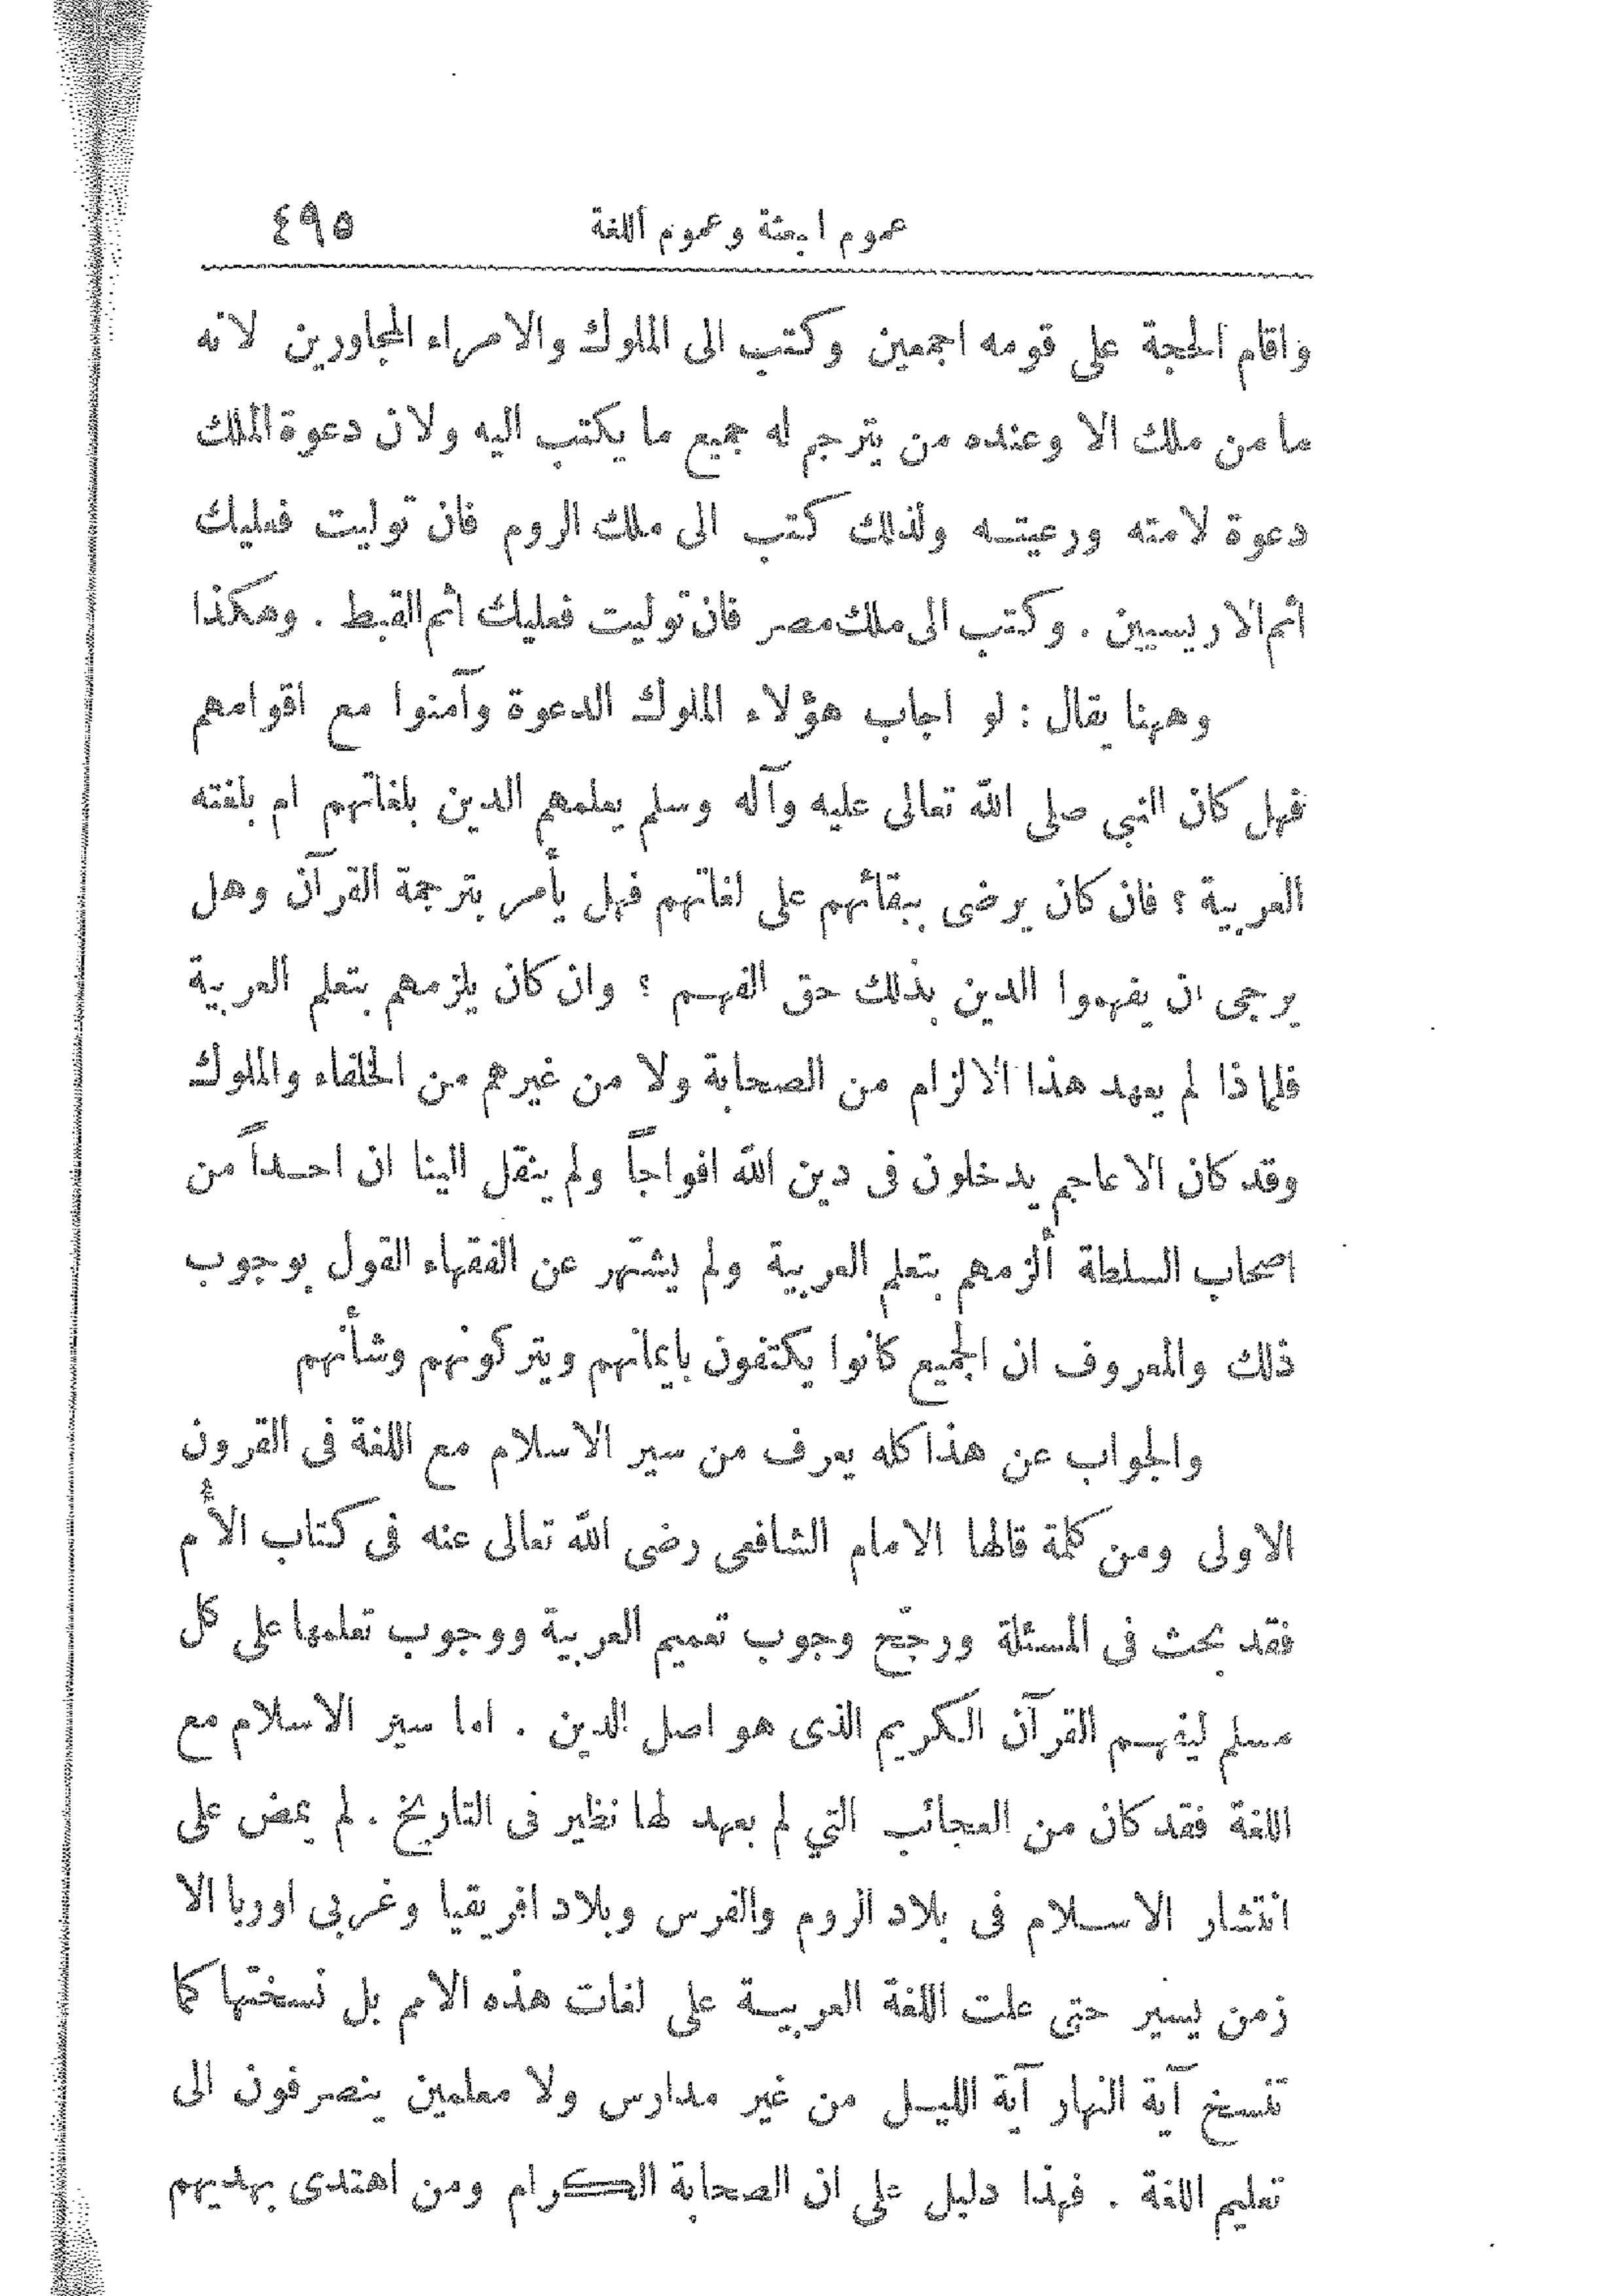 عموم ابعثة وعموم اللغة ٤٩٥
واقام الحجة على قومه اجمعين وكتب الى الملوك والامراء المجاورين لانه
ما من ملك الا وعنده من يترجم له جميع ما يكتب اليه ولان دعوة الملك
دعوة لامته ورعيته ولذلك كتب الى ملك الروم فان توليت فعليك
اثم الاريسيين . وكتب الى ملك مصر فان توليت فعليك اثم القبط . وهكذا
وههنا يقال : لو اجاب هؤلاء الملوك الدعوة وآمنوا مع اقوامهم
فهل كان النبي صلى الله تعالى عليه وآله وسلم يعلمهم الدين بلغاتهم ام بلغته
العربية ؟ فان كان يرضى ببقائهم على لغاتهم فهل يأمر بترجمة القرآن وهل
يرجى ان يفهموا الدين بذلك حق الفهم ؟ وان كان يلزمهم بتعلم العربية
فلماذا لم يعهد هذا الالزام من الصحابة ولا من غيرهم من الخلفاء والملوك
وقد كان الاعاجم يدخلون فى دين الله افواجاً ولم ينقل الينا ان احداً من
اصحاب السلطة ألزمهم بتعلم العربية ولم يشتهر عن الفقهاء القول بوجوب
ذلك والمعروف ان الجميع كانوا يكتفون بايمانهم ويتركونهم وشأنهم
والجواب عن هذا كله يعرف من سير الاسلام مع اللغة فى القرون
الاولى ومن كلمة قالها الامام الشافعى رضى الله تعالى عنه فى كتاب الأم
فقد بحث فى المسئلة ورجّح وجوب تعميم العربية ووجوب تعلمها على كل
مسلم ليفهم القرآن الكريم الذى هو اصل الدين . اما سير الاسلام مع
اللغة فقد كان من العجائب التي لم يعهد لها نظير فى التاريخ . لم يمض على
انتشار الاسلام فى بلاد الروم والفرس وبلاد افريقيا وغربى اوربا الا
زمن يسير حتى علت اللغة العربية على لغات هذه الامم بل نسختها كما
تنسخ آية النهار آية الليل من غير مدارس ولا معلمين ينصرفون الى
تعليم اللغة . فهذا دليل على ان الصحابة الكرام ومن اهتدى بهديهم